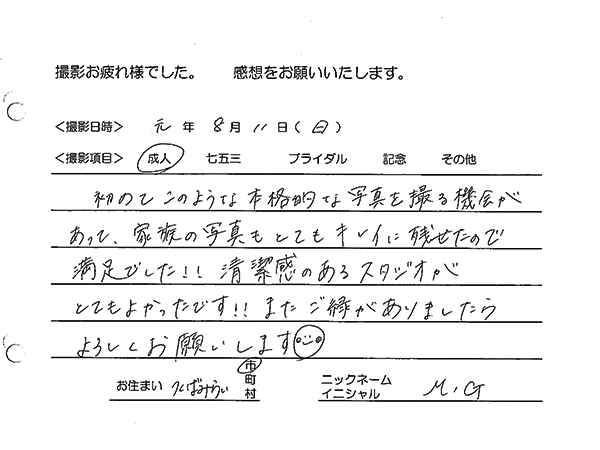 撮影お疲れ様でした。 感想をお願いいたします。
<撮影日時> 元 年 8 月 11 日 ( 日 )
<撮影項目> 成人 七五三 ブライダル 記念 その他
初めてこのような本格的な写真を撮る機会が
あって、家族の写真もとてもキレイに残せたので
満足でした!! 清潔感のあるスタジオが
とてもよかったです!! またご縁がありましたら
よろしくお願いします
お住まい つくばみらい 市 町 村 ニックネーム イニシャル M.G